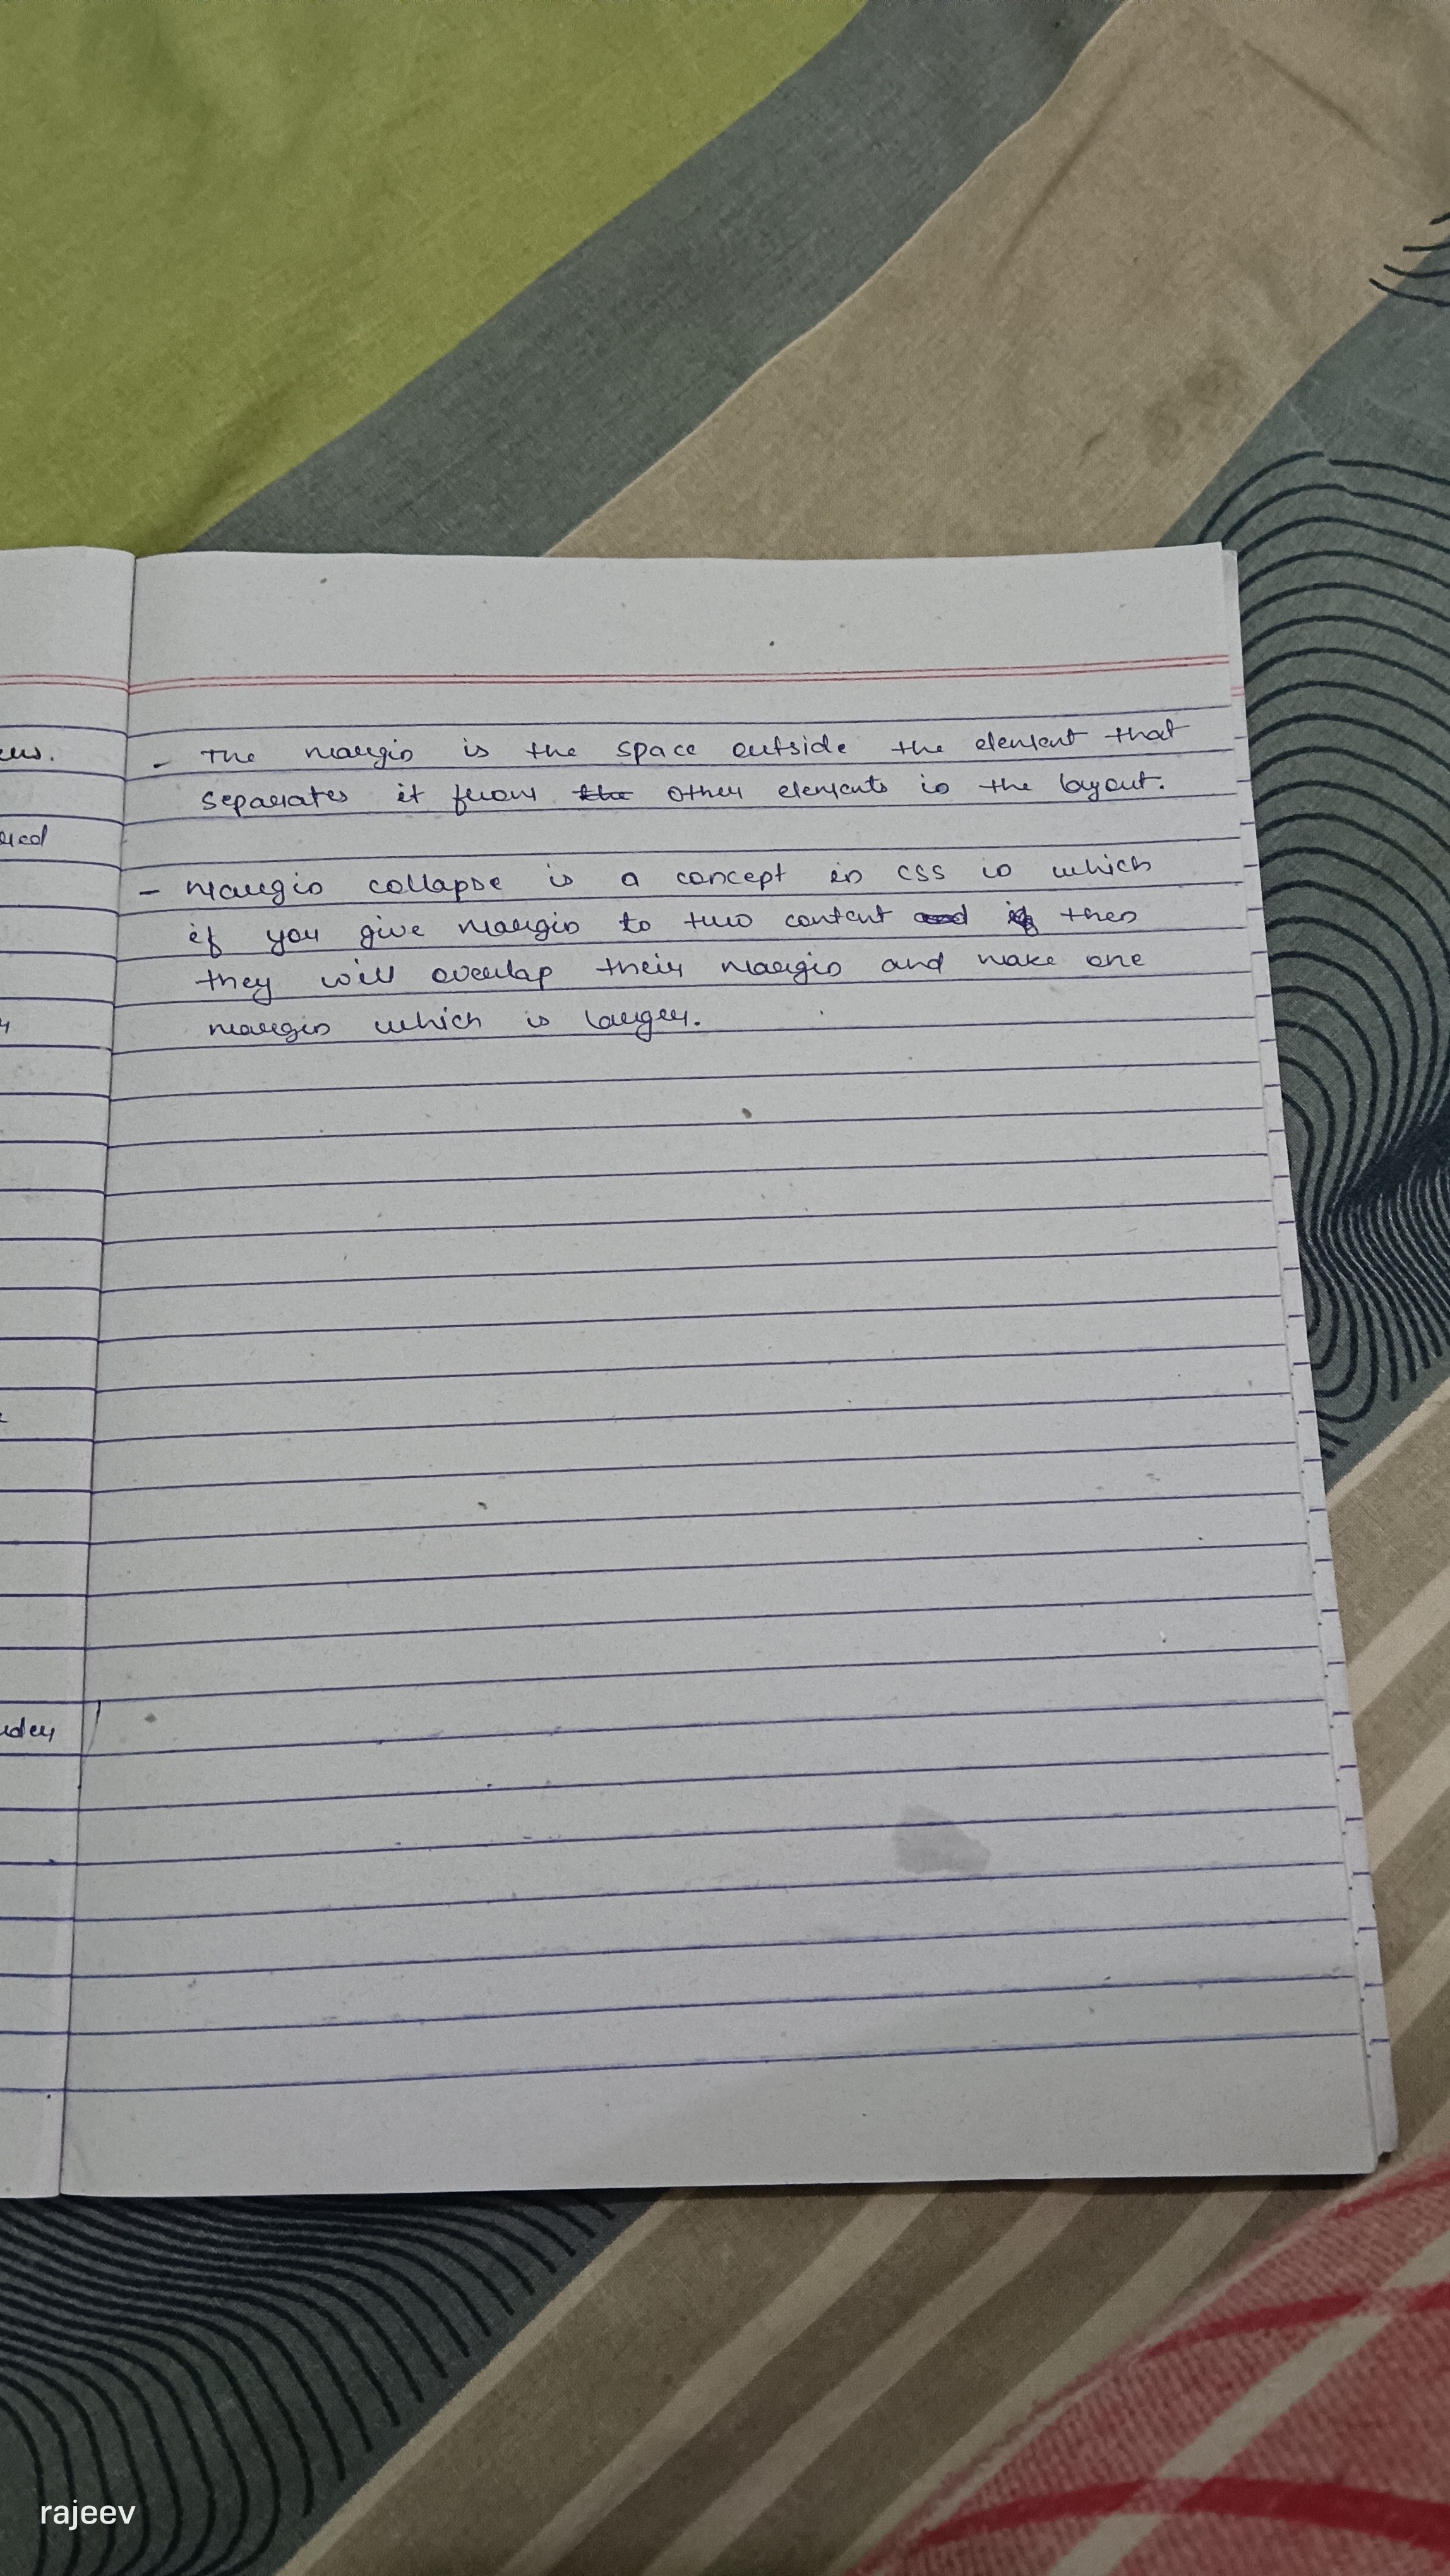 - The margin is the space outside the element that
separates it from the other elements in the layout.
- Margin collapse is a concept in CSS in which
if you give margin to two content and if then
they will overlap their margin and make one
margin which is larger.
rajeev